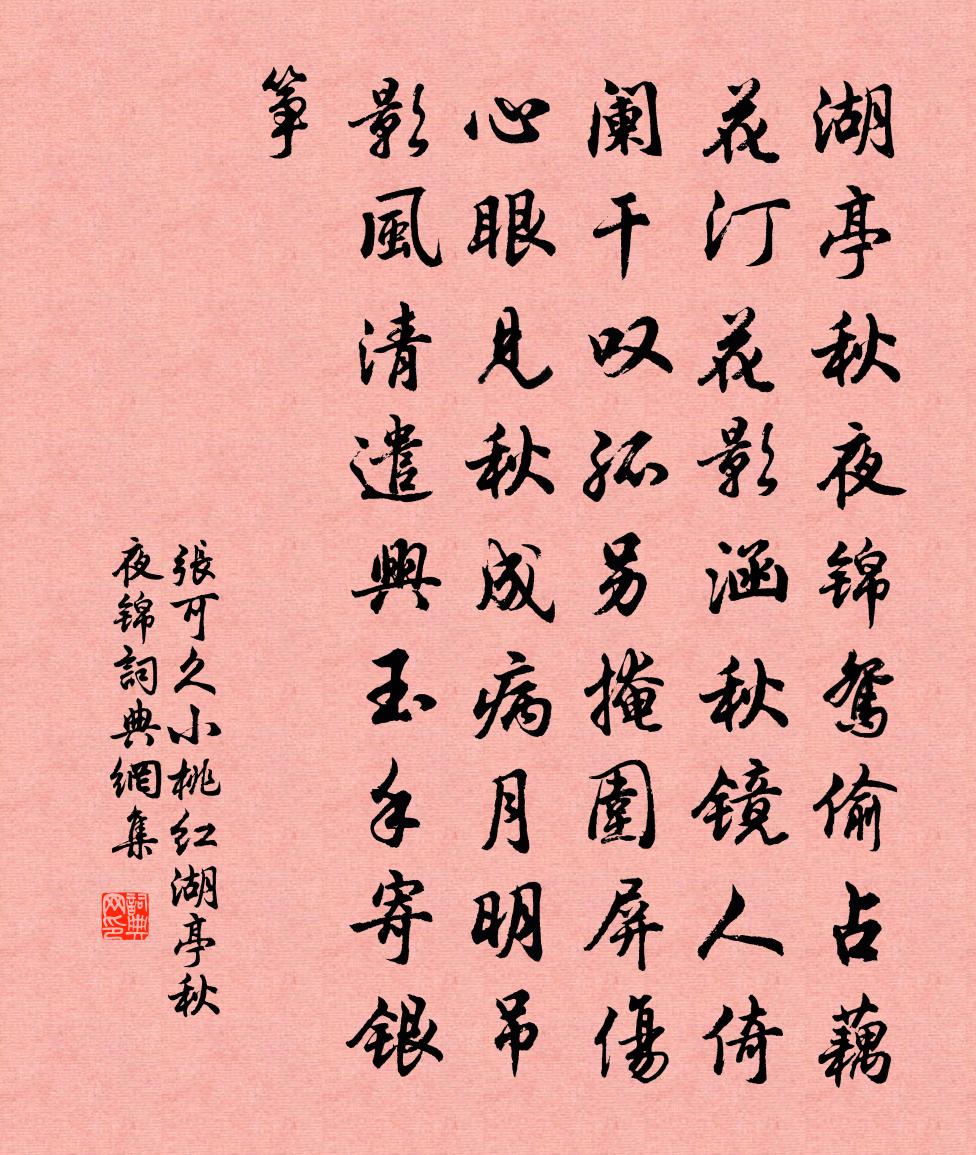 湖亭秋夜锦鸳偷占藕
花汀花影涵秋镜人倚
阑干叹孤另掩围屏傷
心眼見秋成病月明吊
影風清遣興玉手寄銀
筝
張可久小桃红湖亭秋
夜锦詞典網集
詞典
网印